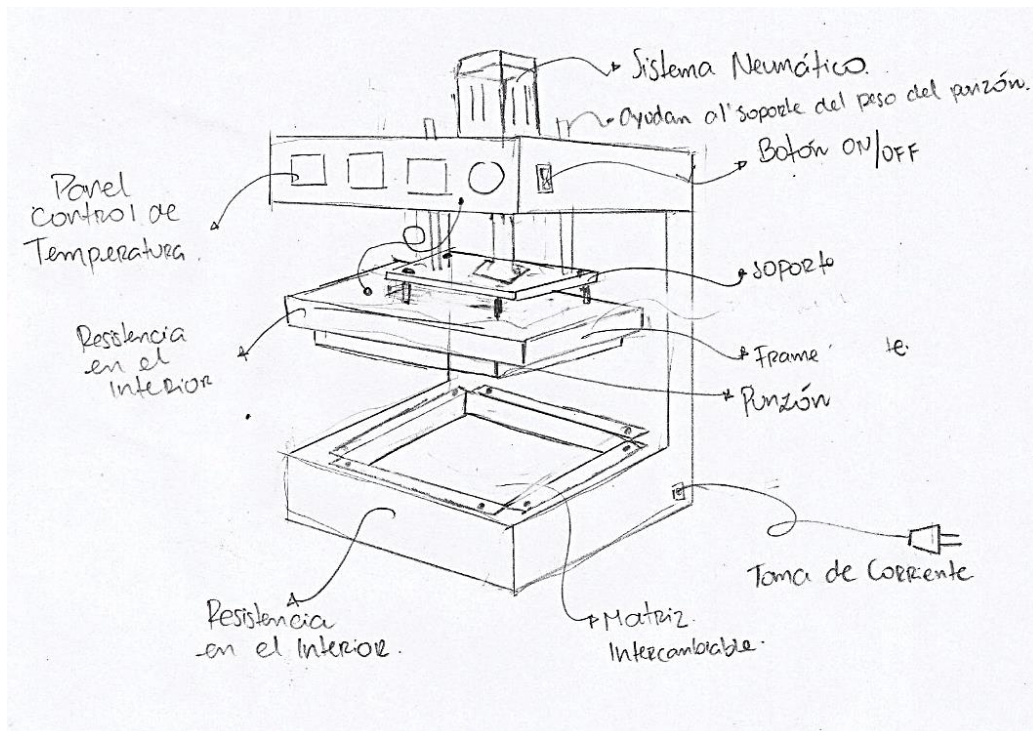 Sistema Neumático.
Ayudan al soporte del peso del punzón.
Botón ON/OFF
Panel
Control de
Temperatura.
Soporte
Resistencia
en el
Interior
Frame
te.
Punzón
Toma de Corriente
Resistencia
en el Interior.
Matriz
Intercambiable.